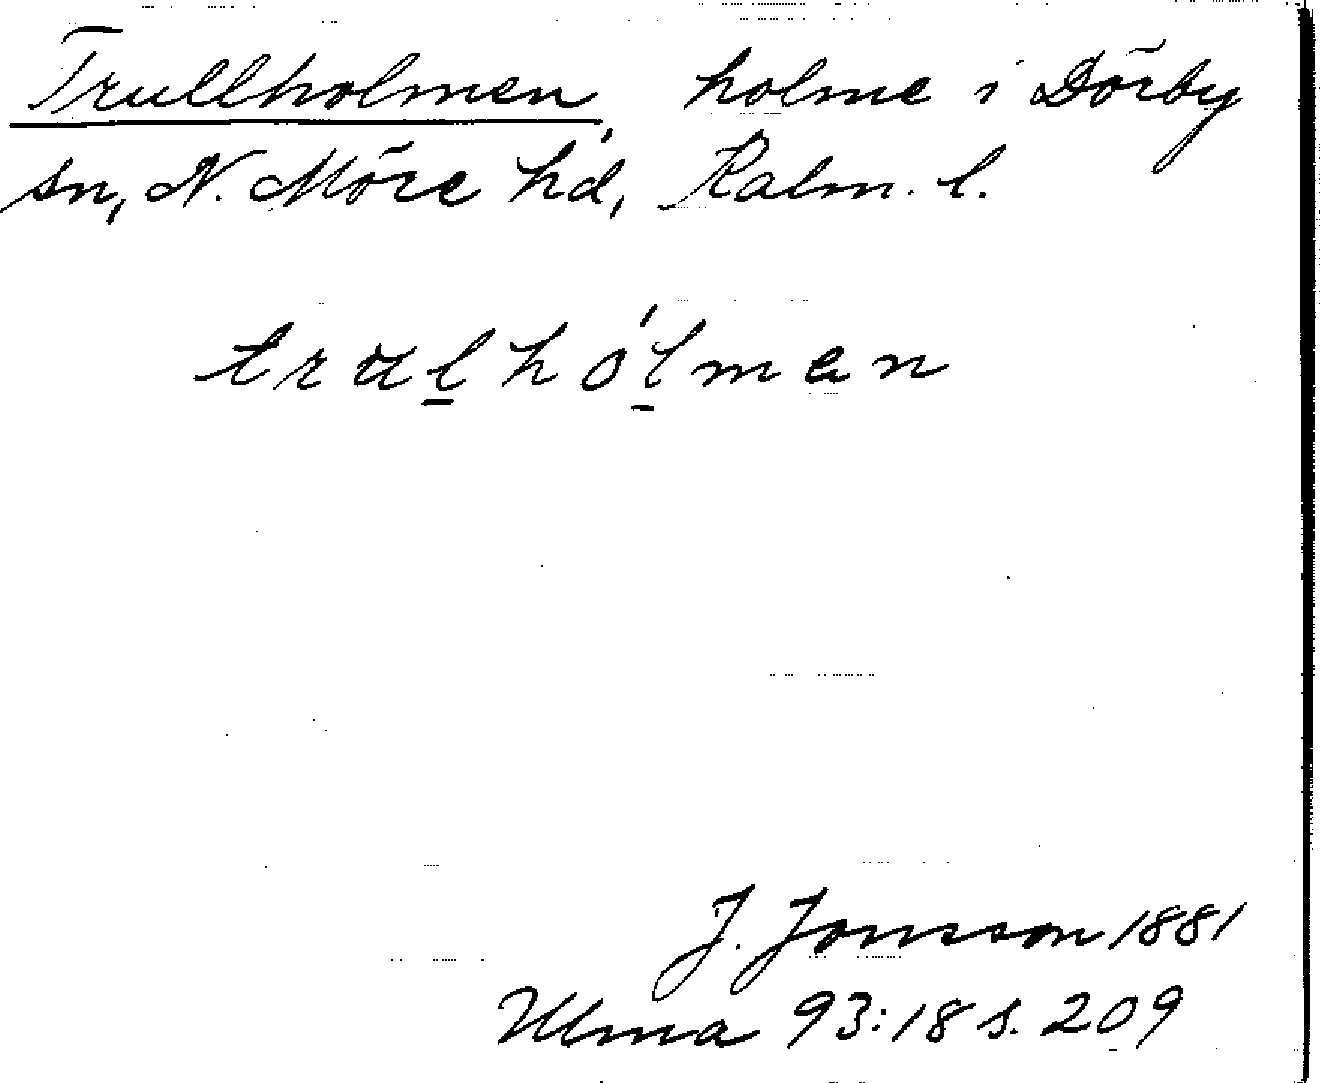 Trullholmen, holme i Dörby
sn, N. Möre hd, Kalm. l.
tralhólman
J. Jonsson 1881
Ulma 93:18 s. 209